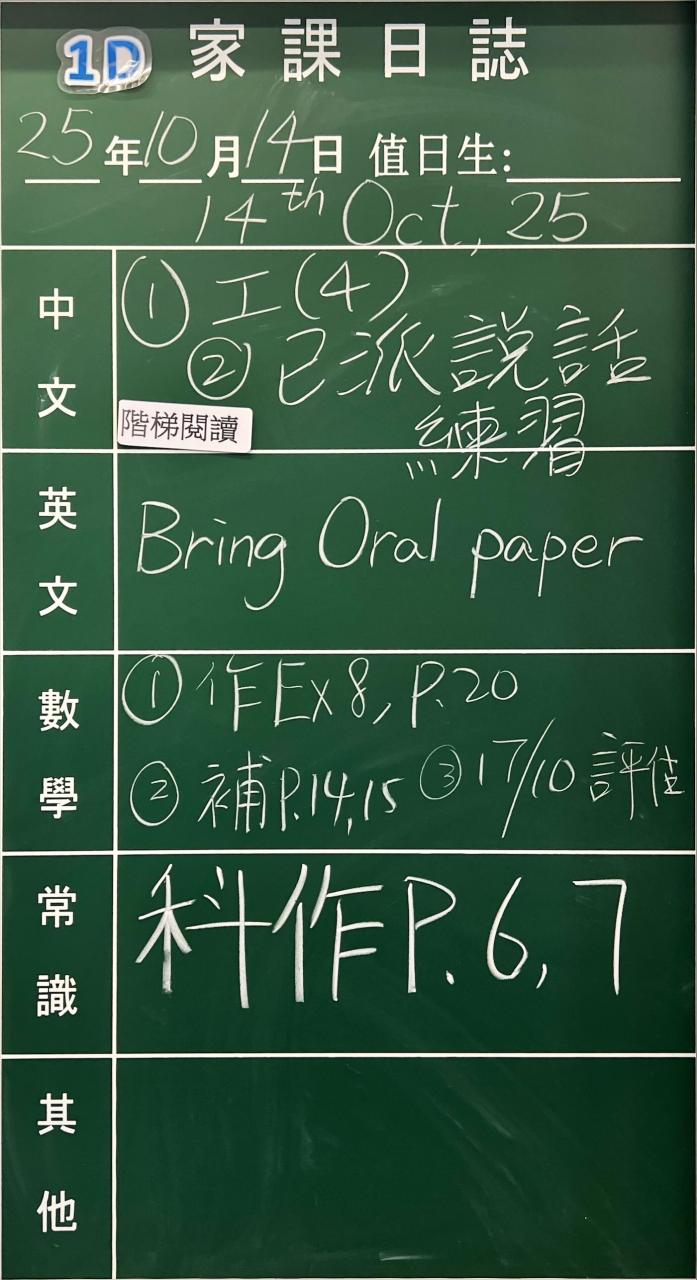 1D 家課日誌
25年10月14日 值日生:
14th Oct, 25
中文
① 工(4)
② 已派說話
練習
階梯閱讀
英文
Bring Oral paper
數學
① 作Ex 8, P.20
② 補P.14,15 ③ 17/10 評估
常識
科作P.6,7
其他